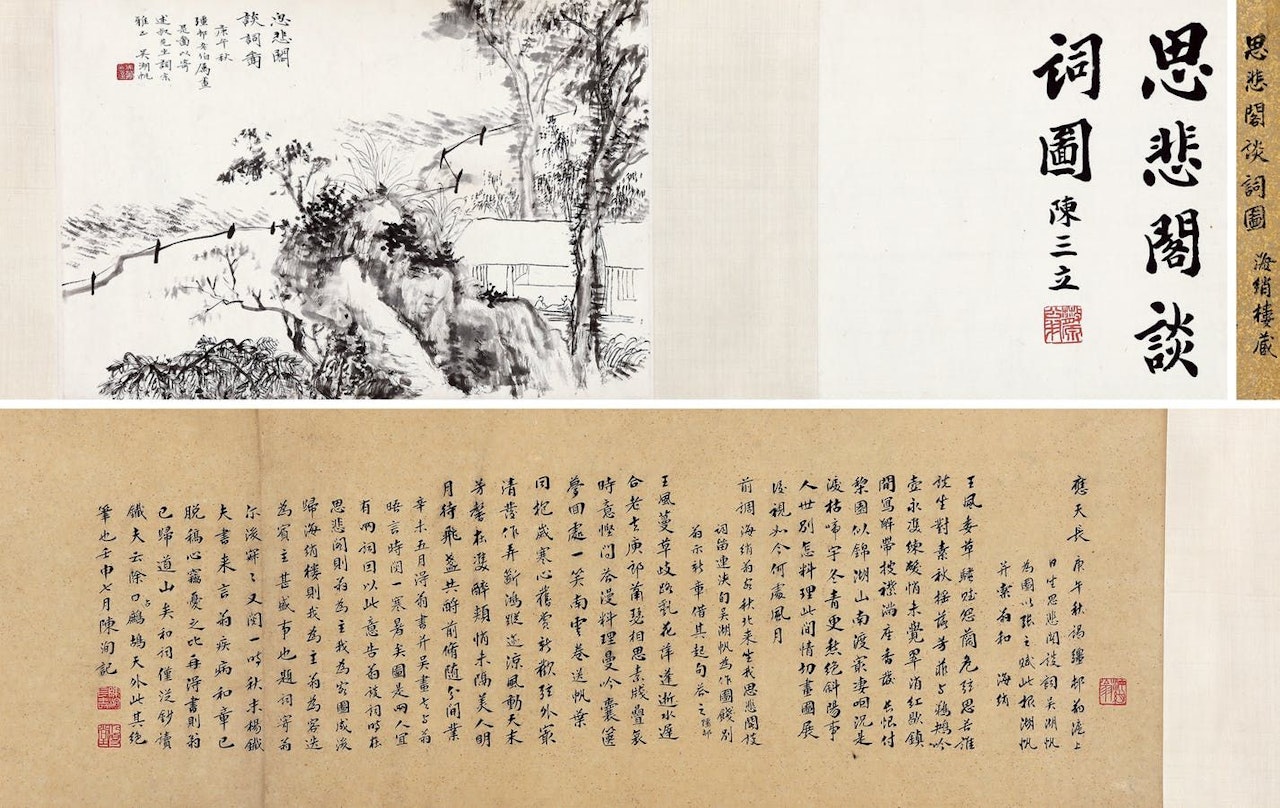 思悲閣談詞圖 海綃樓藏
思悲閣談
詞圖 陳三立
思悲閣
談詞圖
庚午秋
彊邨老伯屬畫
是圖以寄
述叔先生詞宗
雅正 吳湖帆
應天長 庚午秋謁彊邨翁滬上
日坐思悲閣談詞吳湖帆
為圖以張之賦此報湖帆
并索翁和 海綃
王風委草騷賦怨蘭危弦思苦誰
說坐對素秋摇落芳菲與鶗鴂吟
壺永漫練凝悄未覺翠消紅歇鎮
閒寫解帶披襟滿座香發 長恨付
棃園似錦湖山南渡最淒咽況是
淚枯啼宇冬青更愁絕斜陽事
人世別怎料理此間情切畫圖展
後視如今何處風月
前調 海綃翁以秋北來坐我思悲閣談
詞浹旬吳湖帆為作圖餞別
翁示新章借其起句答之 彊邨
王風蔓草歧路亂花萍蓬逝水遲
合老去庾郎蕭瑟相思素牋疊裛
時意慳問答漫料理曼吟囊篋
夢回處一笑南雲卷送帆葉
回抱歲寒心舊賞新歡弦外最
清發作弄斷鴻蹤迹涼風動天末
芳馨未灑醉頰悄未隔美人明
月待飛盞共酹前脩隨分閒業
辛未五月得翁書并吳畫七與翁
晤言時閱一寒暑矣圖是兩人宜
有兩詞因以此意告翁談詞時在
思悲閣則翁為主我為客圖成後
歸海綃樓則我為主翁為客迭
為賓主甚盛事也題詞寄翁
後寂寂又閱一時秋末楊鐵
夫書來言翁疾病和章已
脱稿心竊憂之比再得書則翁
已歸道山矣和詞僅從鈔讀
鐵夫云除口占鷓鴣天外此其絕
筆也壬申七月陳洵記